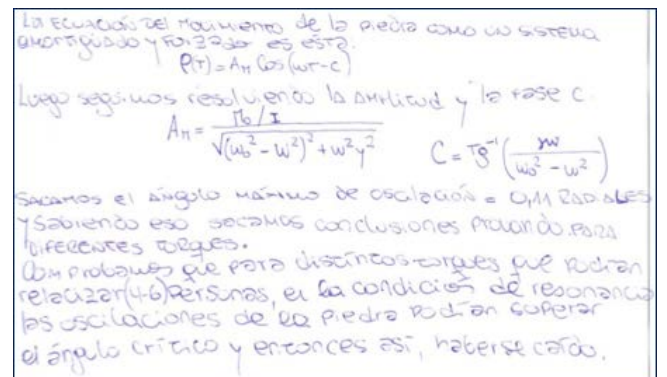 La ecuación del movimiento de la piedra como un sistema
amortiguado y forzado es esta.
φ(t) = A_M Cos(ωt - c)
Luego seguimos resolviendo la amplitud y la fase C.
A_M = (M_0 / I) / √((ω_0² - ω²)² + ω²γ²)    C = Tg⁻¹(γω / (ω_0² - ω²))
Sacamos el ángulo máximo de oscilación = 0,11 RADIALES
y sabiendo eso sacamos conclusiones probando para
diferentes torques.
Comprobamos que para distintos torques que podían
relacizar (4-6) personas, en la condición de resonancia
las oscilaciones de la piedra podían superar
el ángulo crítico y entonces así, haberse caído.